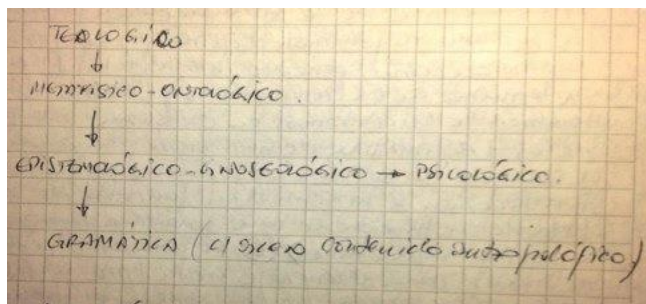 TEOLOGICO
↓
METAFISICO-ONTOLÓGICO.
↓
EPISTEMOLÓGICO-GNOSEOLÓGICO → PSICOLÓGICO.
↓
GRAMÁTICA ( contenido antropológico)